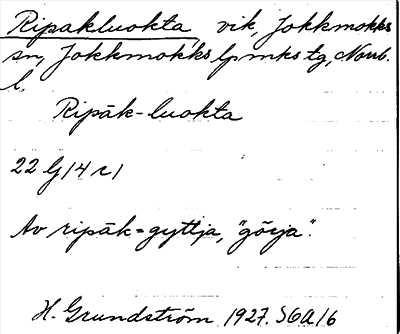 Ripakluokta, vik, Jokkmokks
sn, Jokkmokks lpmks tg, Norrb.
l.
Ripāk-luokta
22 G/4 r/
Av ripāk = gyttja, "görja".
H. Grundström 1927. SOA 16